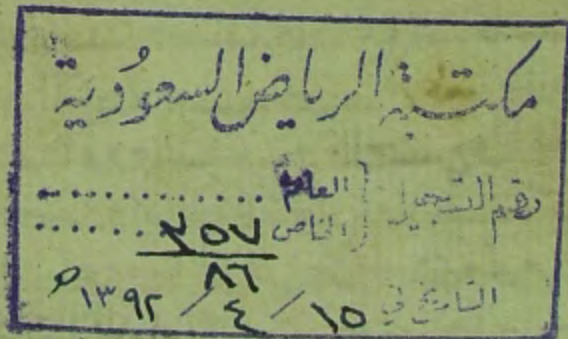 مكتبة الرياض السعودية
رقم التسجيل العام ............
الخاص ٤٥٧ ......
٨٦
التاريخ في ١٥ / ٤ / ١٣٩٢ ه